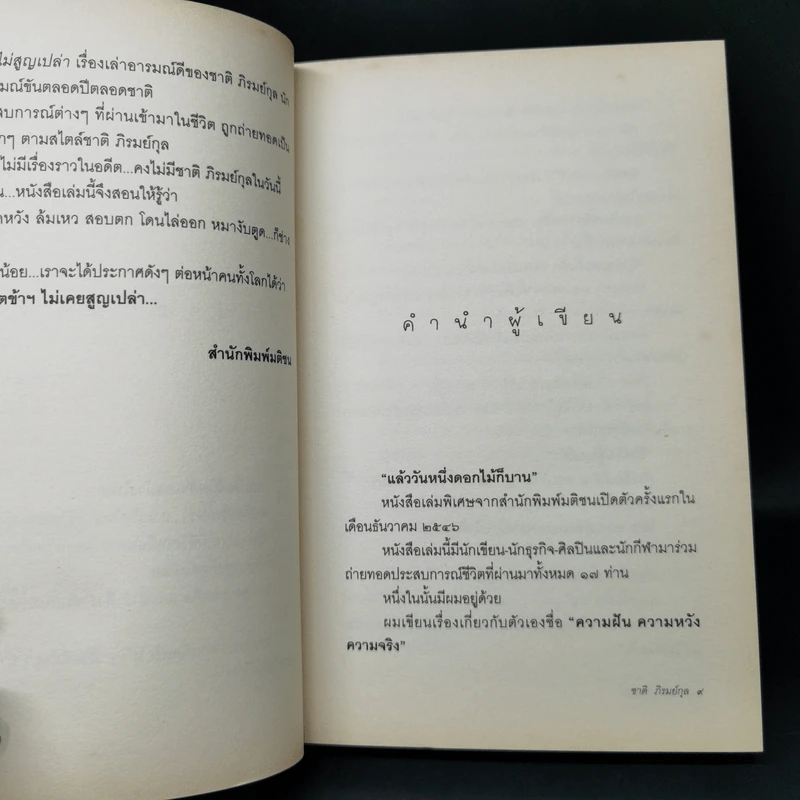 ไม่สูญเปล่า เรื่องเล่าอารมณ์ดีของชาติ ภิรมย์กุล นัก
มณ์ขันตลอดปีตลอดชาติ
สบการณ์ต่างๆ ที่ผ่านเข้ามาในชีวิต ถูกถ่ายทอดเป็น
กๆ ตามสไตล์ชาติ ภิรมย์กุล
ไม่มีเรื่องราวในอดีต...คงไม่มีชาติ ภิรมย์กุลในวันนี้
น...หนังสือเล่มนี้จึงสอนให้รู้ว่า
ดหวัง ล้มเหว สอบตก โดนไล่ออก หมางับตูด...ก็ช่าง
น้อย...เราจะได้ประกาศดังๆ ต่อหน้าคนทั้งโลกได้ว่า
ตข้าฯ ไม่เคยสูญเปล่า...
สำนักพิมพ์มติชน
คำนำผู้เขียน
“แล้ววันหนึ่งดอกไม้ก็บาน”
หนังสือเล่มพิเศษจากสำนักพิมพ์มติชนเปิดตัวครั้งแรกใน
เดือนธันวาคม ๒๕๔๖
หนังสือเล่มนี้มีนักเขียน-นักธุรกิจ-ศิลปินและนักกีฬามาร่วม
ถ่ายทอดประสบการณ์ชีวิตที่ผ่านมาทั้งหมด ๑๗ ท่าน
หนึ่งในนั้นมีผมอยู่ด้วย
ผมเขียนเรื่องเกี่ยวกับตัวเองชื่อ “ความฝัน ความหวัง
ความจริง”
ชาติ ภิรมย์กุล ๙